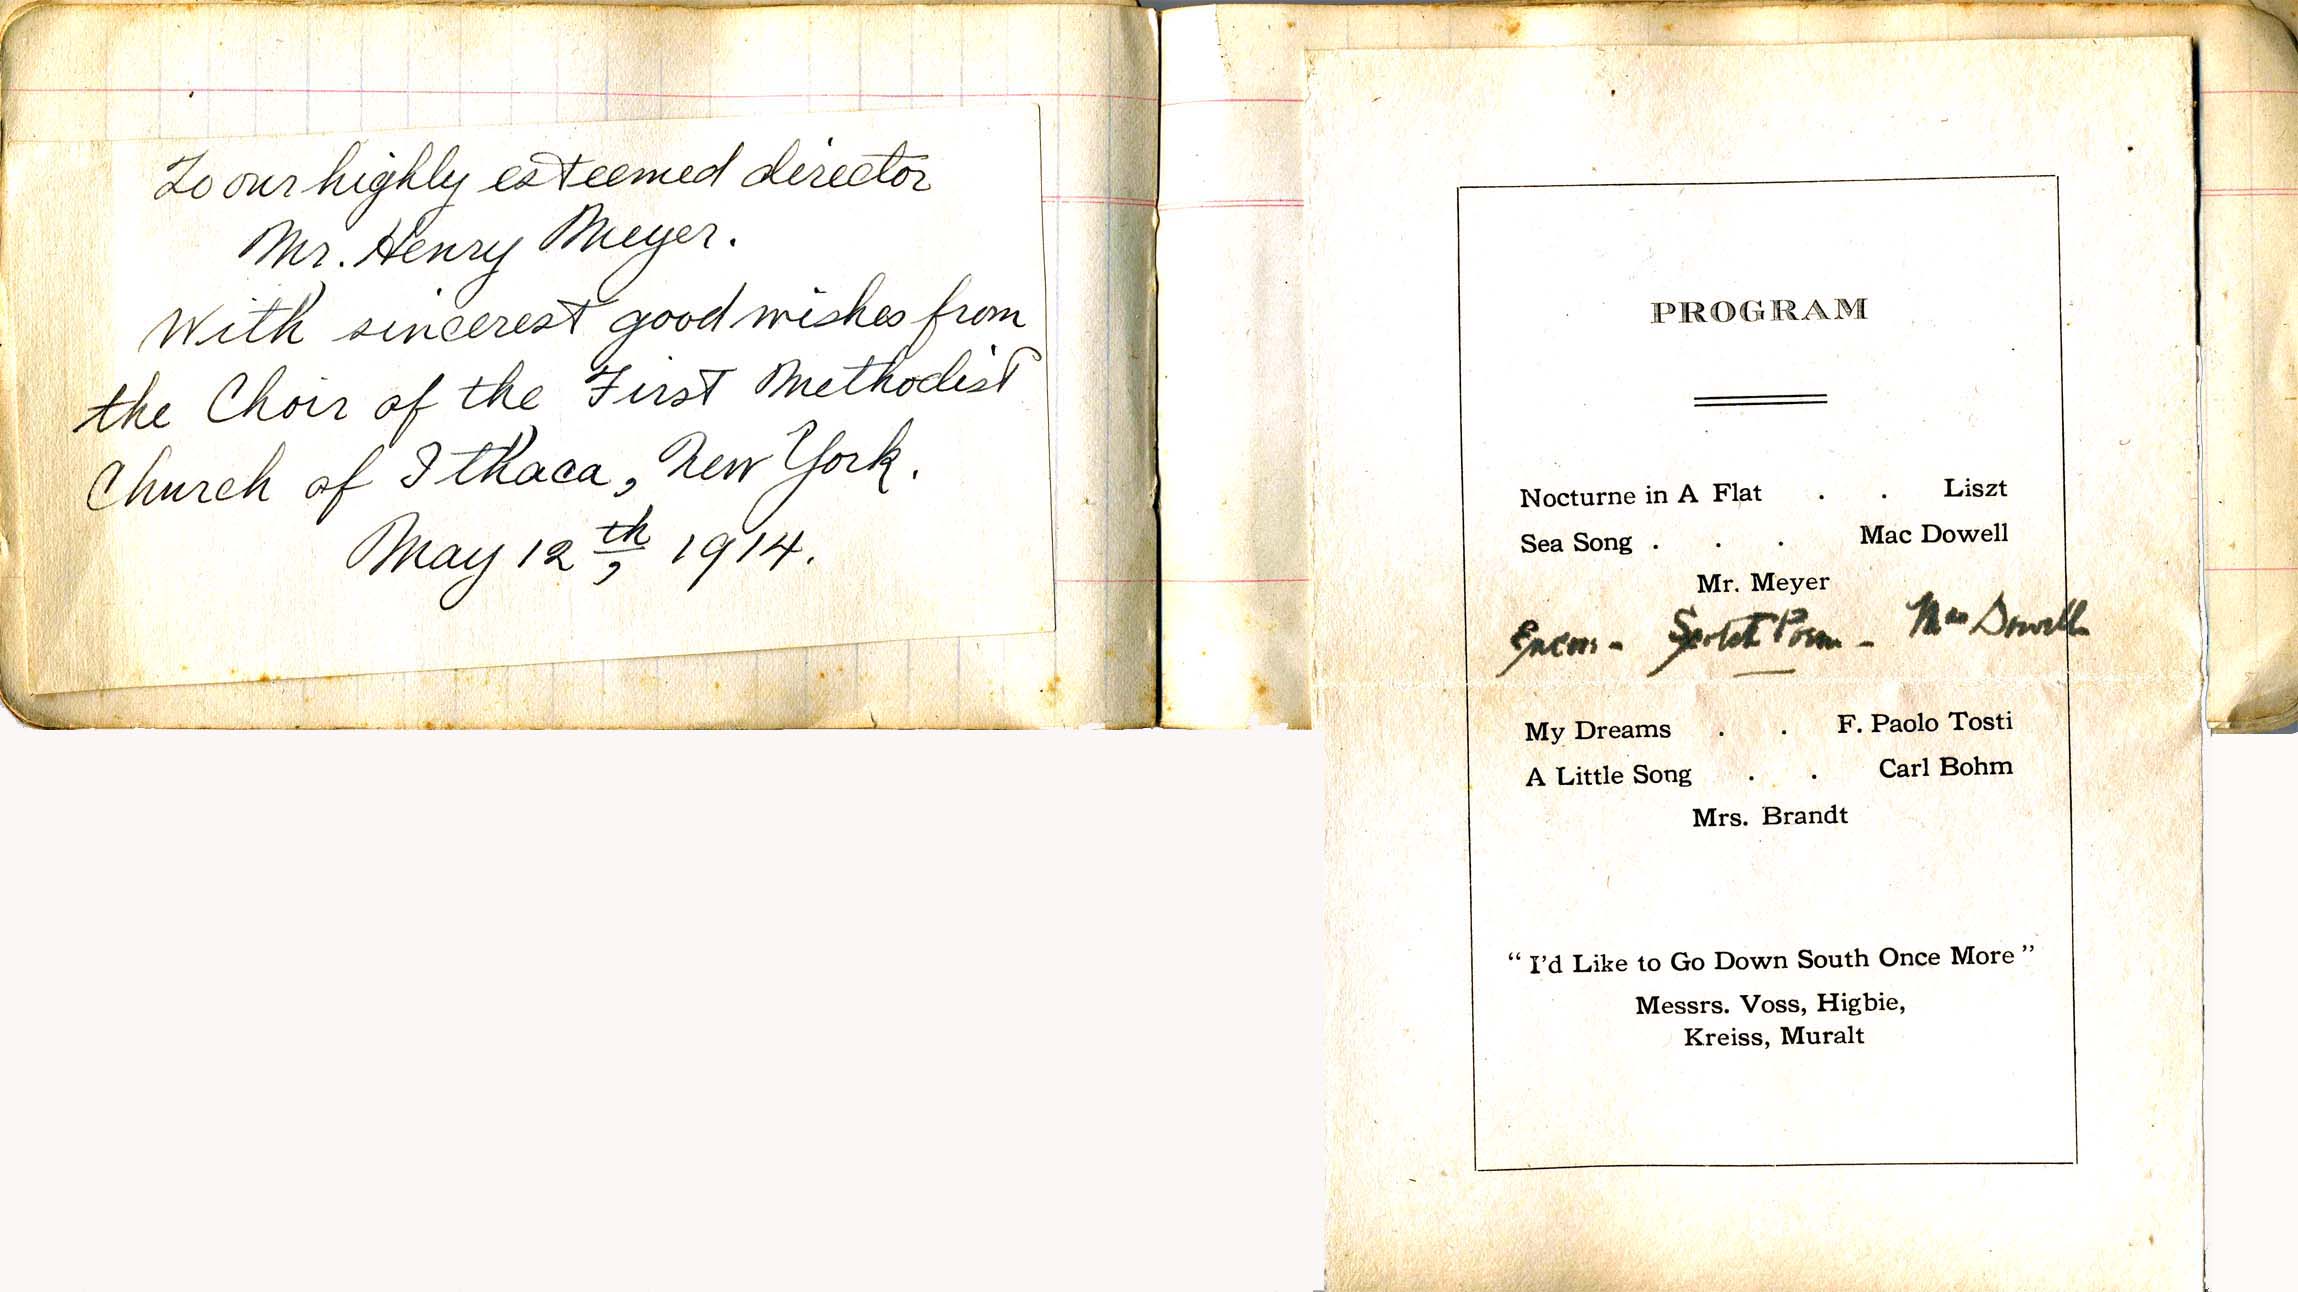 To our highly esteemed director
Mr. Henry Meyer.
With sincerest good wishes from
the Choir of the First Methodist
Church of Ithaca, New York.
May 12th, 1914.
PROGRAM
Nocturne in A Flat . . Liszt
Sea Song . . . Mac Dowell
Mr. Meyer
Encore - Scotch Poem - MacDowell
My Dreams . . F. Paolo Tosti
A Little Song . . Carl Bohm
Mrs. Brandt
“I’d Like to Go Down South Once More”
Messrs. Voss, Higbie,
Kreiss, Muralt